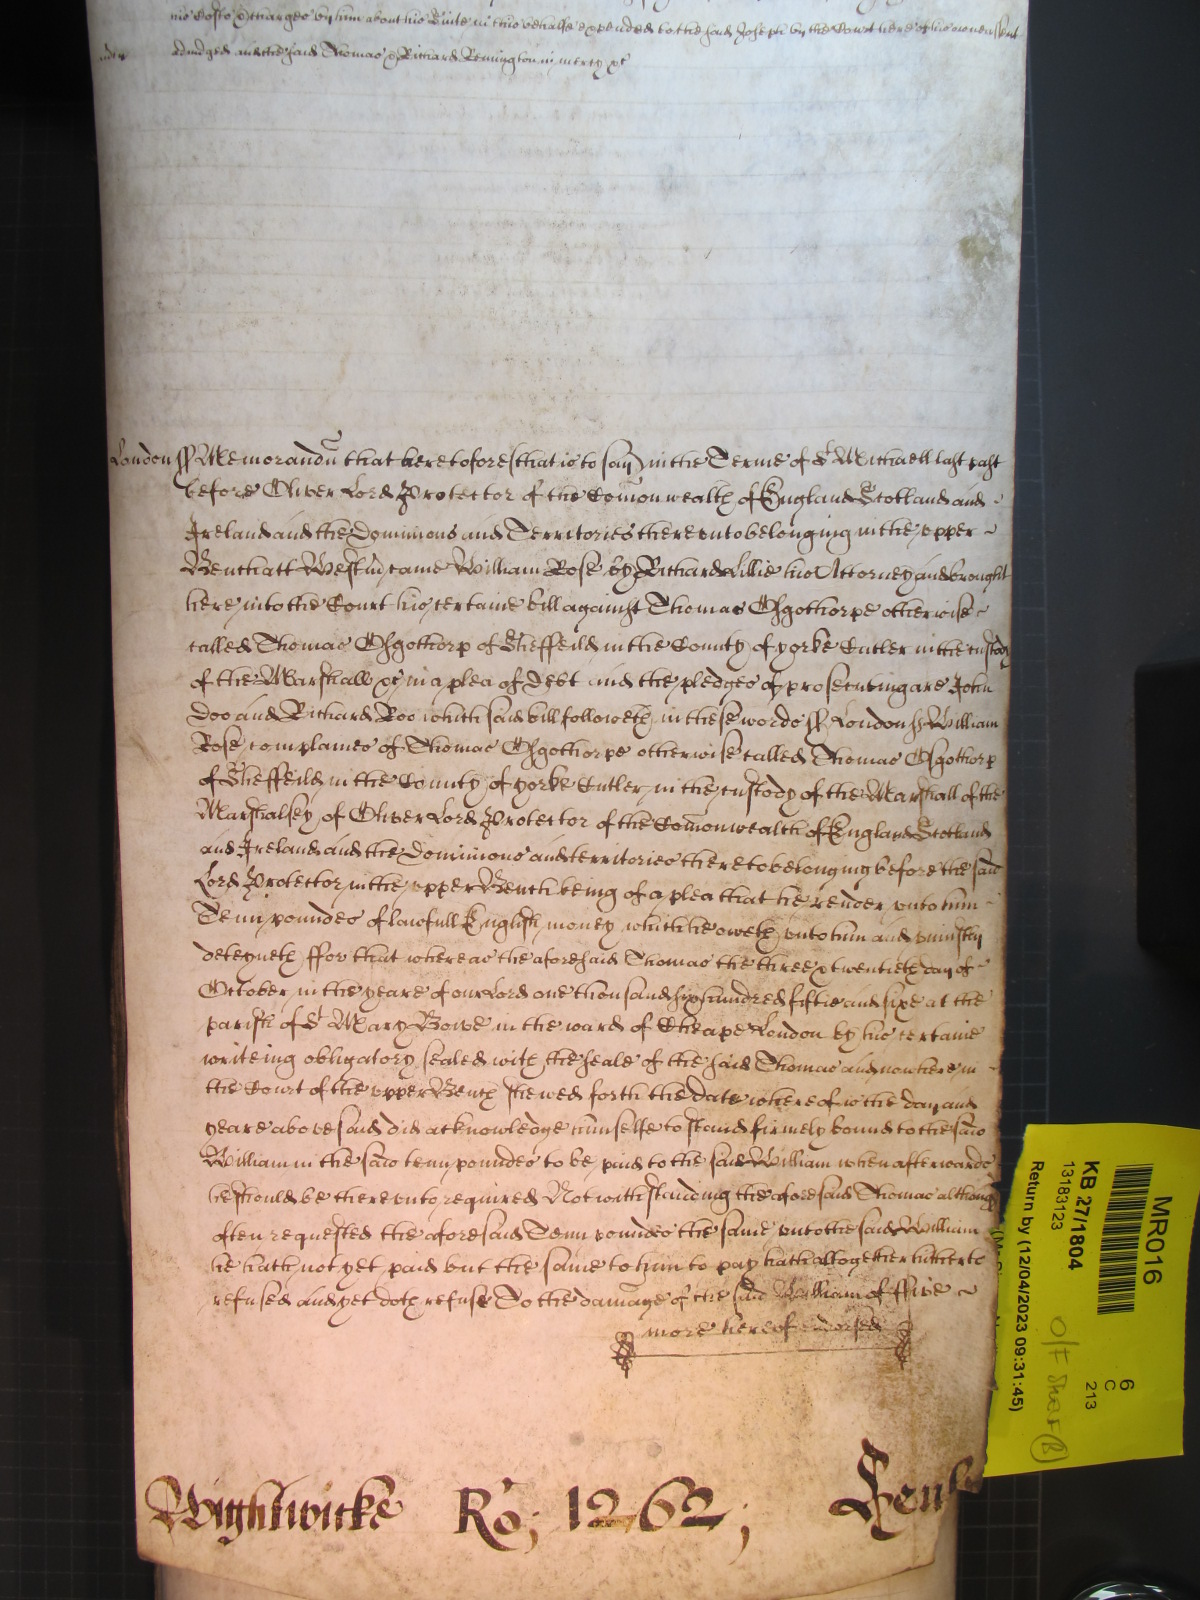 his Costs & charges by him about his Suite in this behalfe expended to the said Joseph by the Court here of his owne assent
adiudged and the said Thomas & Richard Remington in mercy &c
London ss Memorandu that heretofore (that is to say) in the Terme of St Michaell last past
before Oliver Lord Protector of the Comon wealth of England Scotland and
Ireland and the Dominions and Territories thereunto belonging in the upper
Bench att Westm came William Rose by Richard Lillie his Attorney and brought
here into the Court his certaine bill against Thomas Osgothorpe otherwise
called Thomas Osgothorp of Sheffeild in the County of yorke Cutler in the custody
of the Marshall &c in a plea of Debt and the pledges of prosecuting are John
Doo and Richard Roo which said bill followeth in these words ss London ss William
Rose complaines of Thomas Osgothorpe otherwise called Thomas Osgothorp
of Sheffeild in the County of yorke Cutler in the custody of the Marshall of the
Marshalsey of Oliver Lord Protector of the Comonwealth of England Scotland
and Ireland and the Dominions and territories thereto belonging before the said
Lord Protector in the upper Bench being of a plea that he render unto him
Tenn poundes of lawfull English money which he oweth unto him and uniustly
deteyneth ffor that whereas the aforesaid Thomas the three & twentieth day of
October in the yeare of our Lord one thousand six hundred fiftie and sixe at the
parish of St Mary Bowe in the ward of Cheape London by his certaine
writeing obligatory sealed with the seale of the said Thomas and now here in
the Court of the upper Bench shewed forth the date whereof is the day and
yeare abovesaid did acknowledge himselfe to stand firmely bound to the said
William in the said tenn poundes to be paid to the said William when afterwards
he should be thereunto required Notwithstanding the aforesaid Thomas although
often requested the aforesaid Tenn poundes the same unto the said William
he hath not yet paid but the same to him to pay hath altogether hitherto
refused and yet doth refuse To the damage of the said William of ffive
more hereof endorsed
Wightwicke Ro; 1262;
MR016
KB 27/1804
13183123
Return by (12/04/2023 09:31:45)
6
C
213
O/F